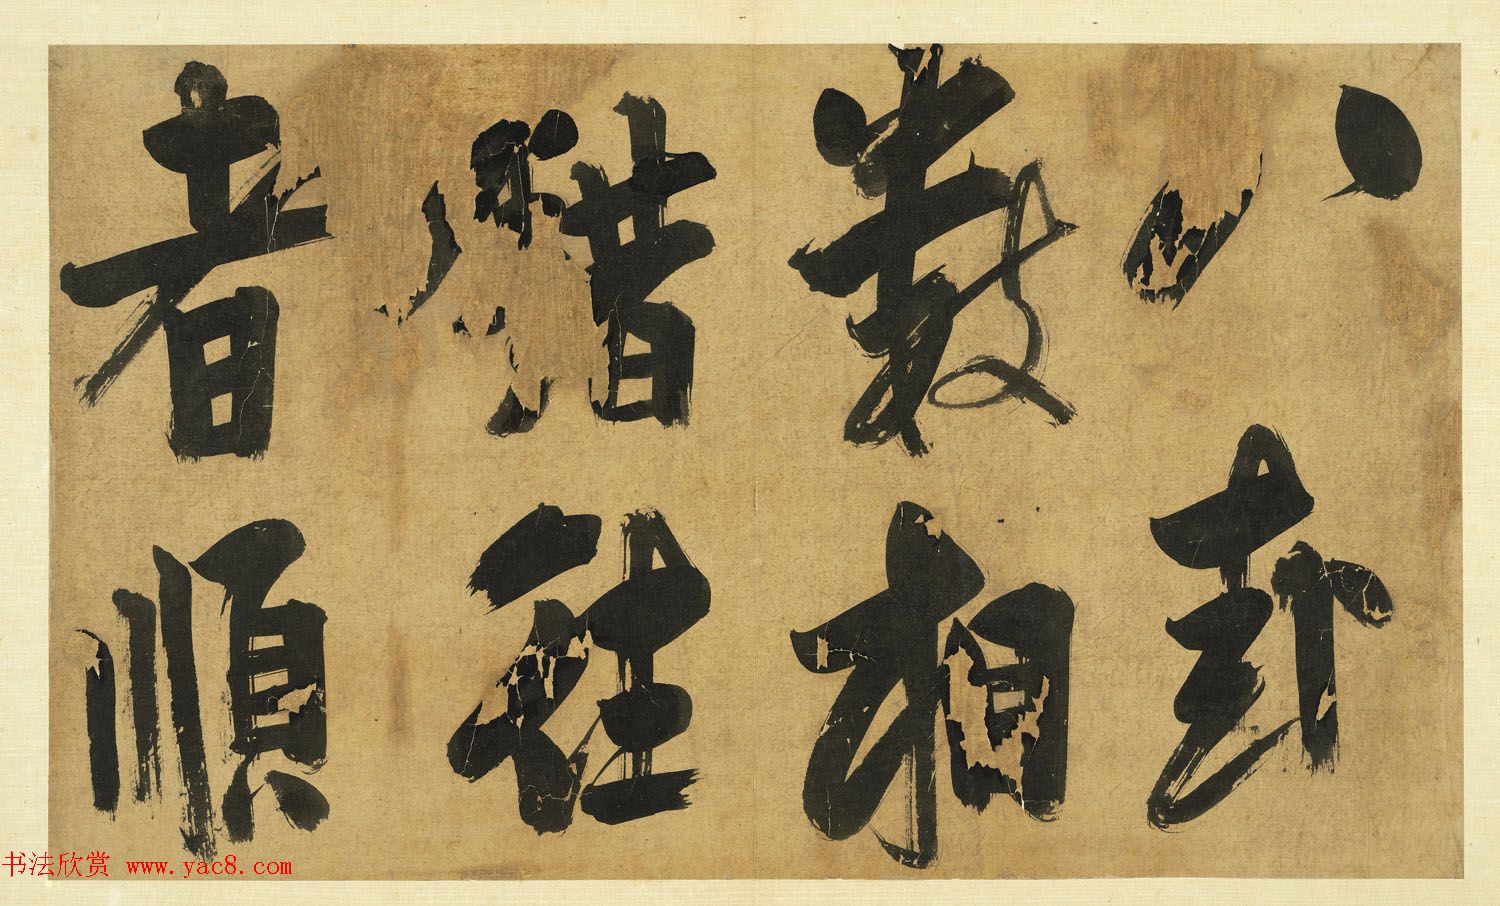 八卦
數相
錯往
者順
书法欣赏 www.yac8.com